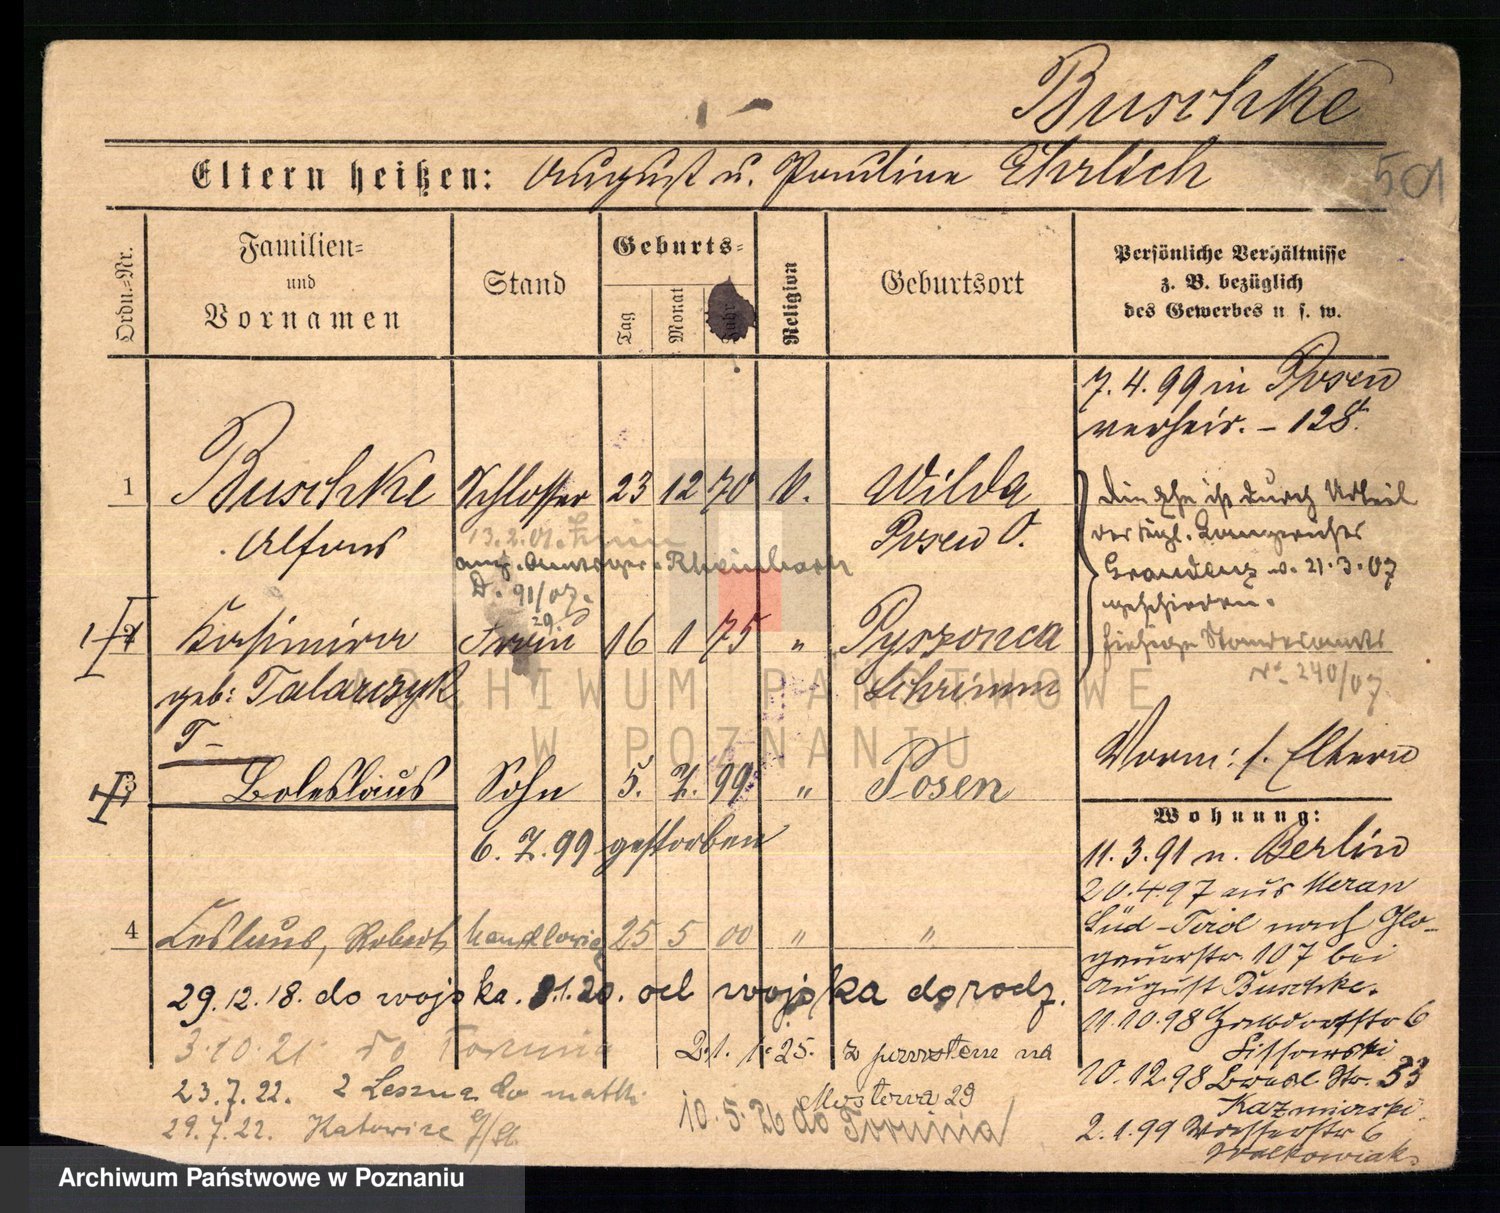 Buschke
501
Eltern heißen: August u. Pauline Ehrlich
Ordn.-Nr.
Familien-
und
Vornamen
Stand
Geburts-
Tag
Monat
Jahr
Religion
Geburtsort
Persönliche Verhältnisse
z. B. bezüglich
des Gewerbes u. s. w.
7.4.99 in Posen
verheir. - 128.
1 Buschke Schlosser 23 12 70 k. Wilda
Alfons Posen O.
13.2.01.
Rheinbach
D. 91/07.
Die Ehe ist durch Urteil
der Kgl. Landgerichts
Graudenz v. 21.3.07
geschieden.
hiesige Standesamts
No 240/07
2 Kasimira Frau 16 1 75 " Pyszonca
geb: Talarczyk Schrimm
T-
Vorm: s. Eltern
3 Boleslaus Sohn 5. 7. 99 " Posen
6.7.99 gestorben
Wohnung:
11.3.91 n. Berlin
20.4.97 aus Meran
Süd-Tirol nach Glo-
gauerstr. 107 bei
August Buschke.
11.10.98
10.12.98 Bresl. Str. 53
Kazmierski
2.1.99 Wasserstr 6
Walkowiak
4 Ceslaus, Robert, 25 5 00 " "
29.12.18. do wojska. 8.1.20. od wojska do rodz.
3.10.21 do Torunia
21.1.25. z powrotem na
Mostowa 29
23.7.22. z Leszna do matki
29.7.22. Katowice
10.5.26 do Torunia
ARCHIWUM PAŃSTWOWE
W POZNANIU
Archiwum Państwowe w Poznaniu